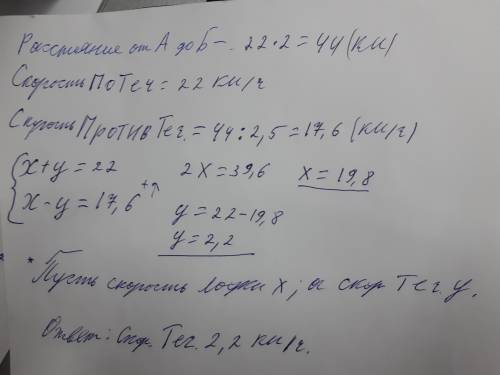 Расстояние от А до Б -. 22·2=44(км)
Скорость По Теч = 22 км/ч
Скорость Против Теч. = 44:2,5=17,6(км/ч)
x+y=22 2x=39,6 x=19,8
x-y=17,6 + y=22-19,8
y=2,2
* Пусть скорость лодки x, а скор Теч. y.
Ответ: Скор. Теч. 2,2 км/ч.